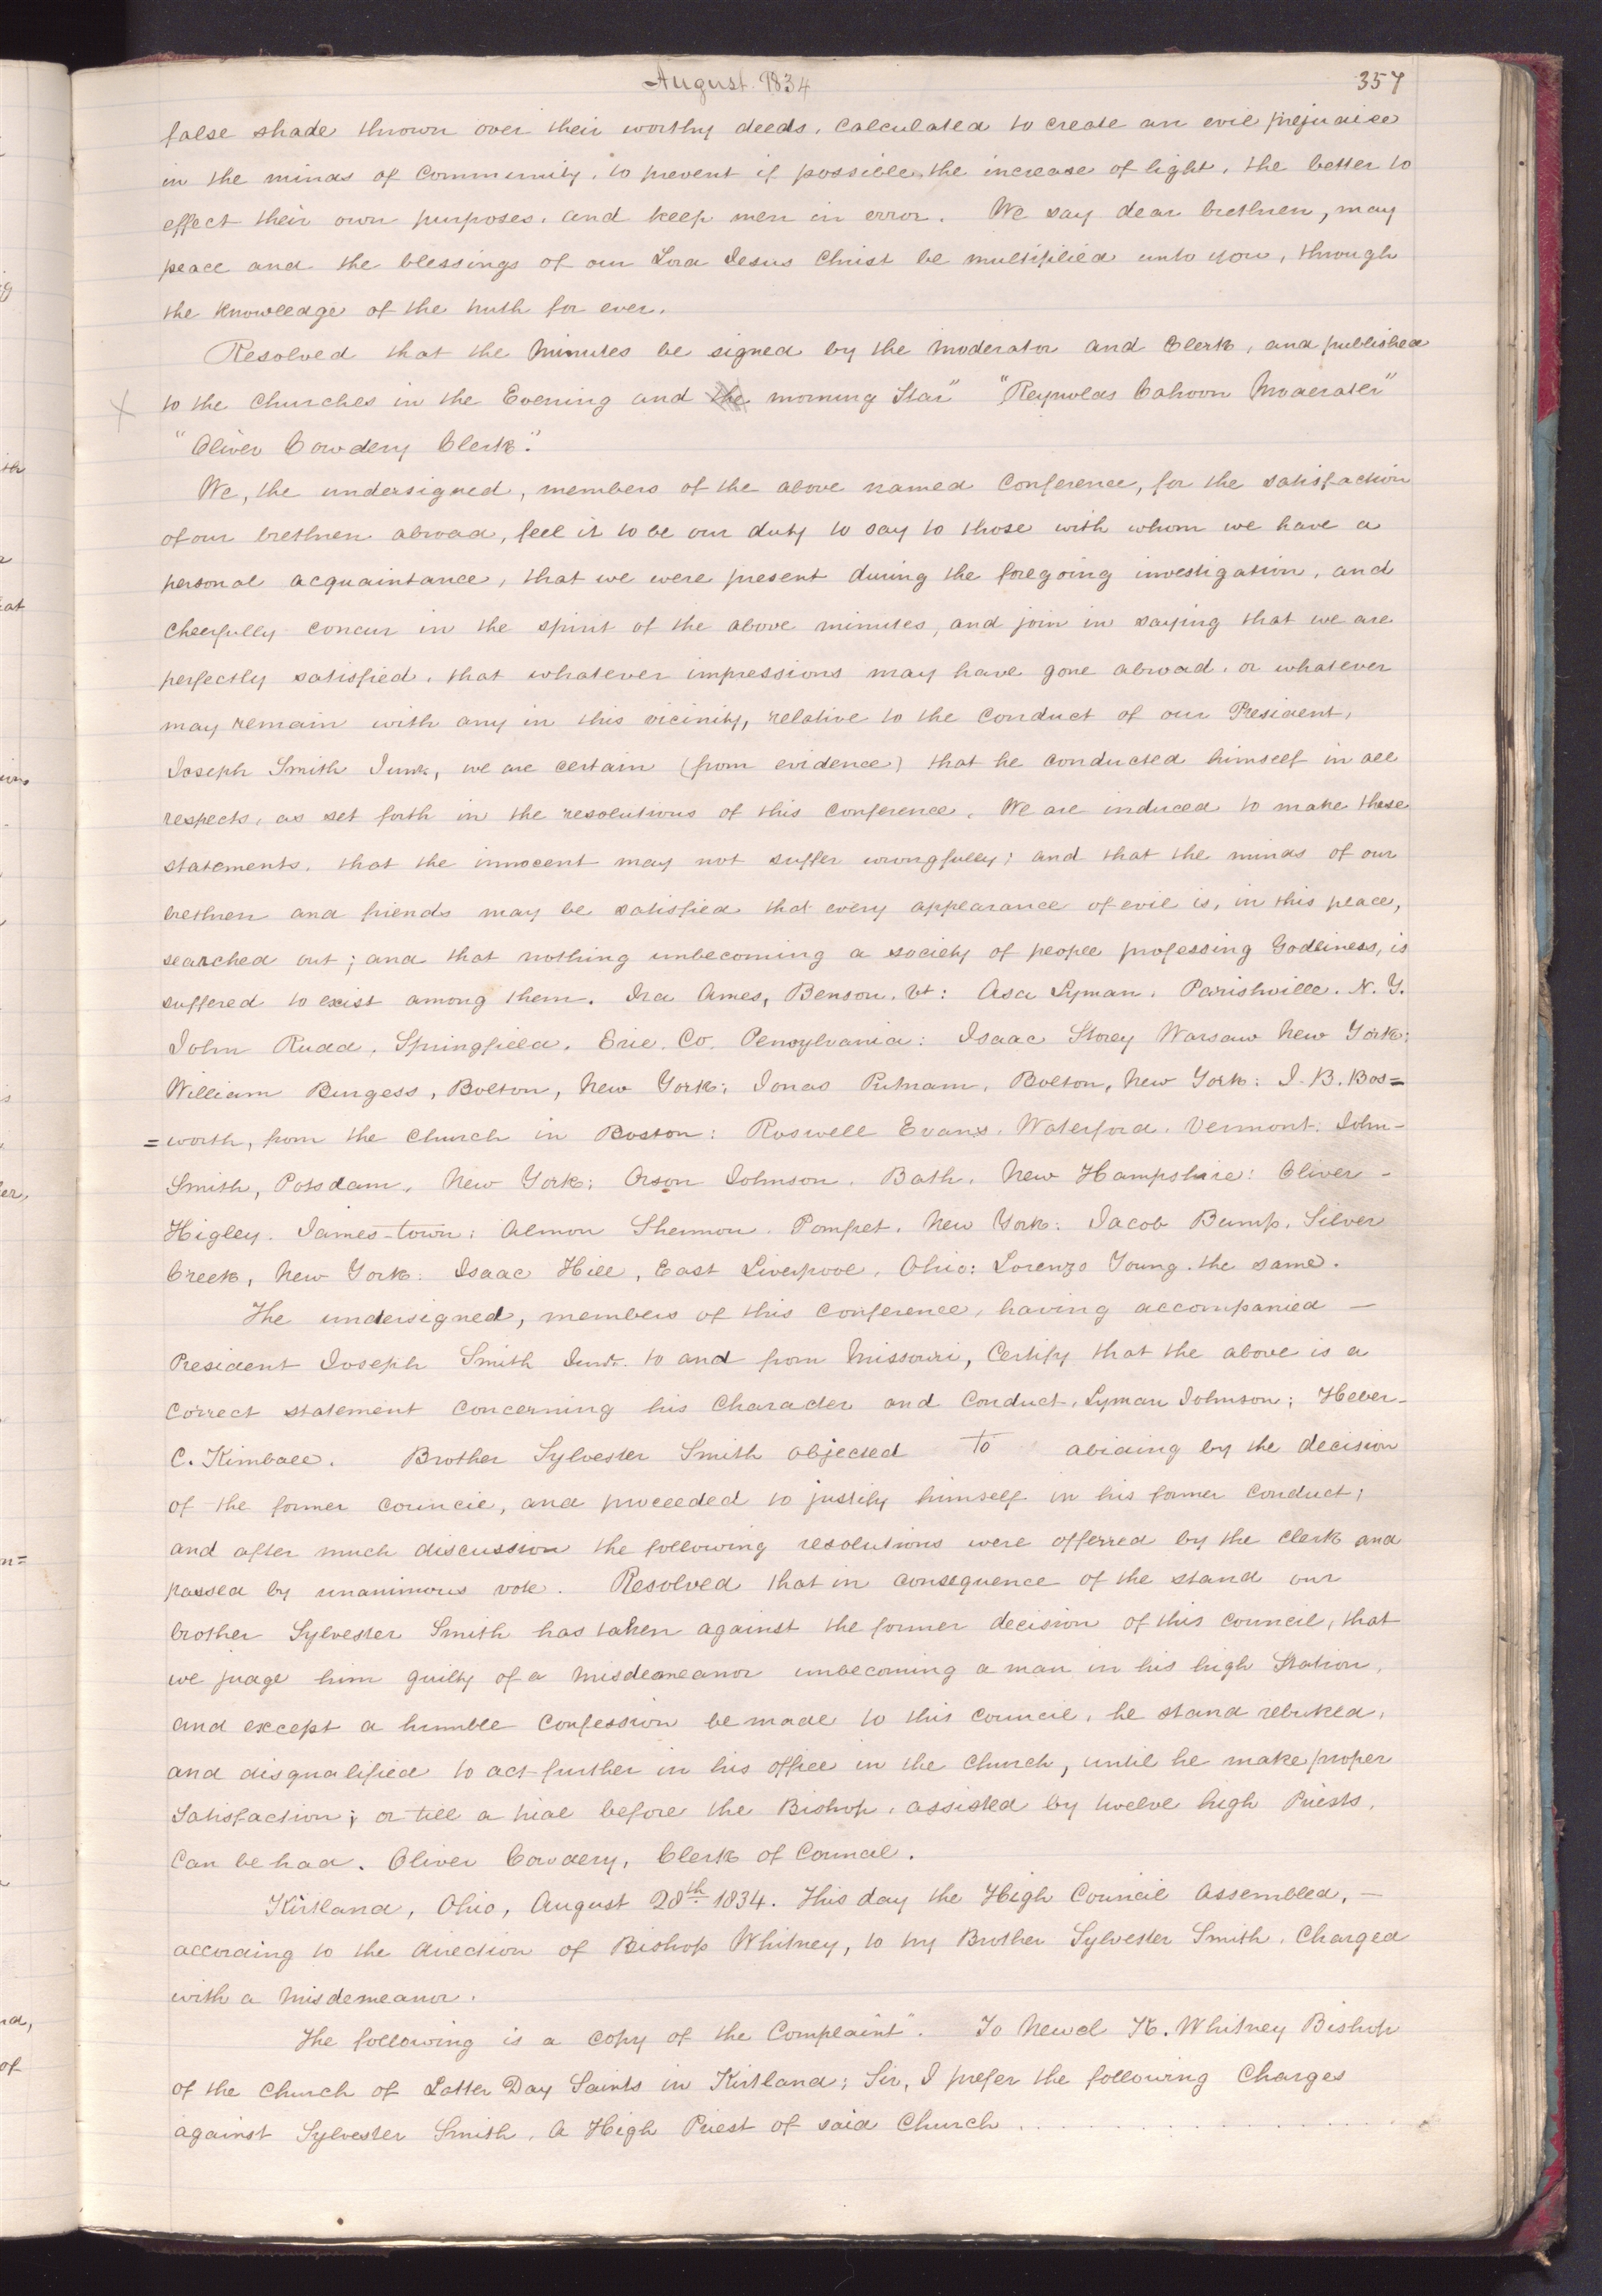 August 1834
357
false shade thrown over their worthy deeds, calculated to create an evil prejudice
in the minds of community, to prevent if possible, the increase of light, the better to
effect their own purposes, and keep men in error. We say dear brethren, may
peace and the blessings of our Lord Jesus Christ be multiplied unto you, through
the knowledge of the truth for ever.
Resolved that the Minutes be signed by the Moderator and Clerk, and published
to the churches in the Evening and the morning Star" "Reynolds Cahoon Moderater"
"Oliver Cowdery Clerk".
We, the undersigned, members of the above named Conference, for the satisfaction
of our brethren abroad, feel it to be our duty to say to those with whom we have a
personal acquaintance, that we were present during the foregoing investigation, and
cheerfully concur in the spirit of the above minutes, and join in saying that we are
perfectly satisfied, that whatever impressions may have gone abroad, or whatever
may remain with any in this vicinity, relative to the conduct of our President,
Joseph Smith Junr, we are certain (from evidence) that he conducted himself in all
respects, as set forth in the resolutions of this conference. We are induced to make these
statements, that the innocent may not suffer wrongfully; and that the minds of our
brethren and friends may be satisfied that every appearance of evil is, in this place,
searched out; and that nothing unbecoming a society of people professing Godliness, is
suffered to exist among them. Ira Ames, Benson, Vt: Asa Lyman, Parishville, N. Y.
John Rudd, Springfield, Erie, Co. Pensylvania: Isaac Storey Warsaw New York;
William Burgess, Bolton, New York; Jonas Putnam, Bolton, New York: J. B. Bos=
=worth, from the church in Boston: Roswell Evans, Waterford, Vermont. John-
Smith, Potsdam, New York; Orson Johnson, Bath, New Hampshire: Oliver -
Higley, James-town; Almon Shermon, Pomfret, New York: Jacob Bump, Silver
Creek, New York: Isaac Hill, East Liverpool, Ohio: Lorenzo Young, the same.
The undersigned, members of this conference, having accompanied —
President Joseph Smith Junr. to and from Missouri, Certify that the above is a
correct statement concerning his character and conduct. Lyman Johnson; Heber-
C. Kimball. Brother Sylvester Smith objected to abiding by the decision
of the former council, and proceeded to justify himself in his former conduct;
and after much discussion the following resolutions were offerred by the clerk and
passed by unanimous vote. Resolved that in consequence of the stand our
brother Sylvester Smith has taken against the former decision of this council, that
we judge him guilty of a misdemeanor unbecoming a man in his high station,
and except a humble confession be made to this council, he stand rebuked,
and disqualified to act further in his office in the church, until he make proper
Satisfaction; or till a trial before the Bishop, assisted by twelve high Priests,
can be had. Oliver Cowdery, Clerk of Council.
Kirtland, Ohio, August 28th 1834. This day the High Council assembled, —
according to the direction of Bishop Whitney, to try Brother Sylvester Smith, Charged
with a misdemeanor.
The following is a copy of the Complaint". To Newel K. Whitney Bishop
of the church of Latter Day Saints in Kirtland; Sir, I prefer the following Charges
against Sylvester Smith, a High Priest of said Church